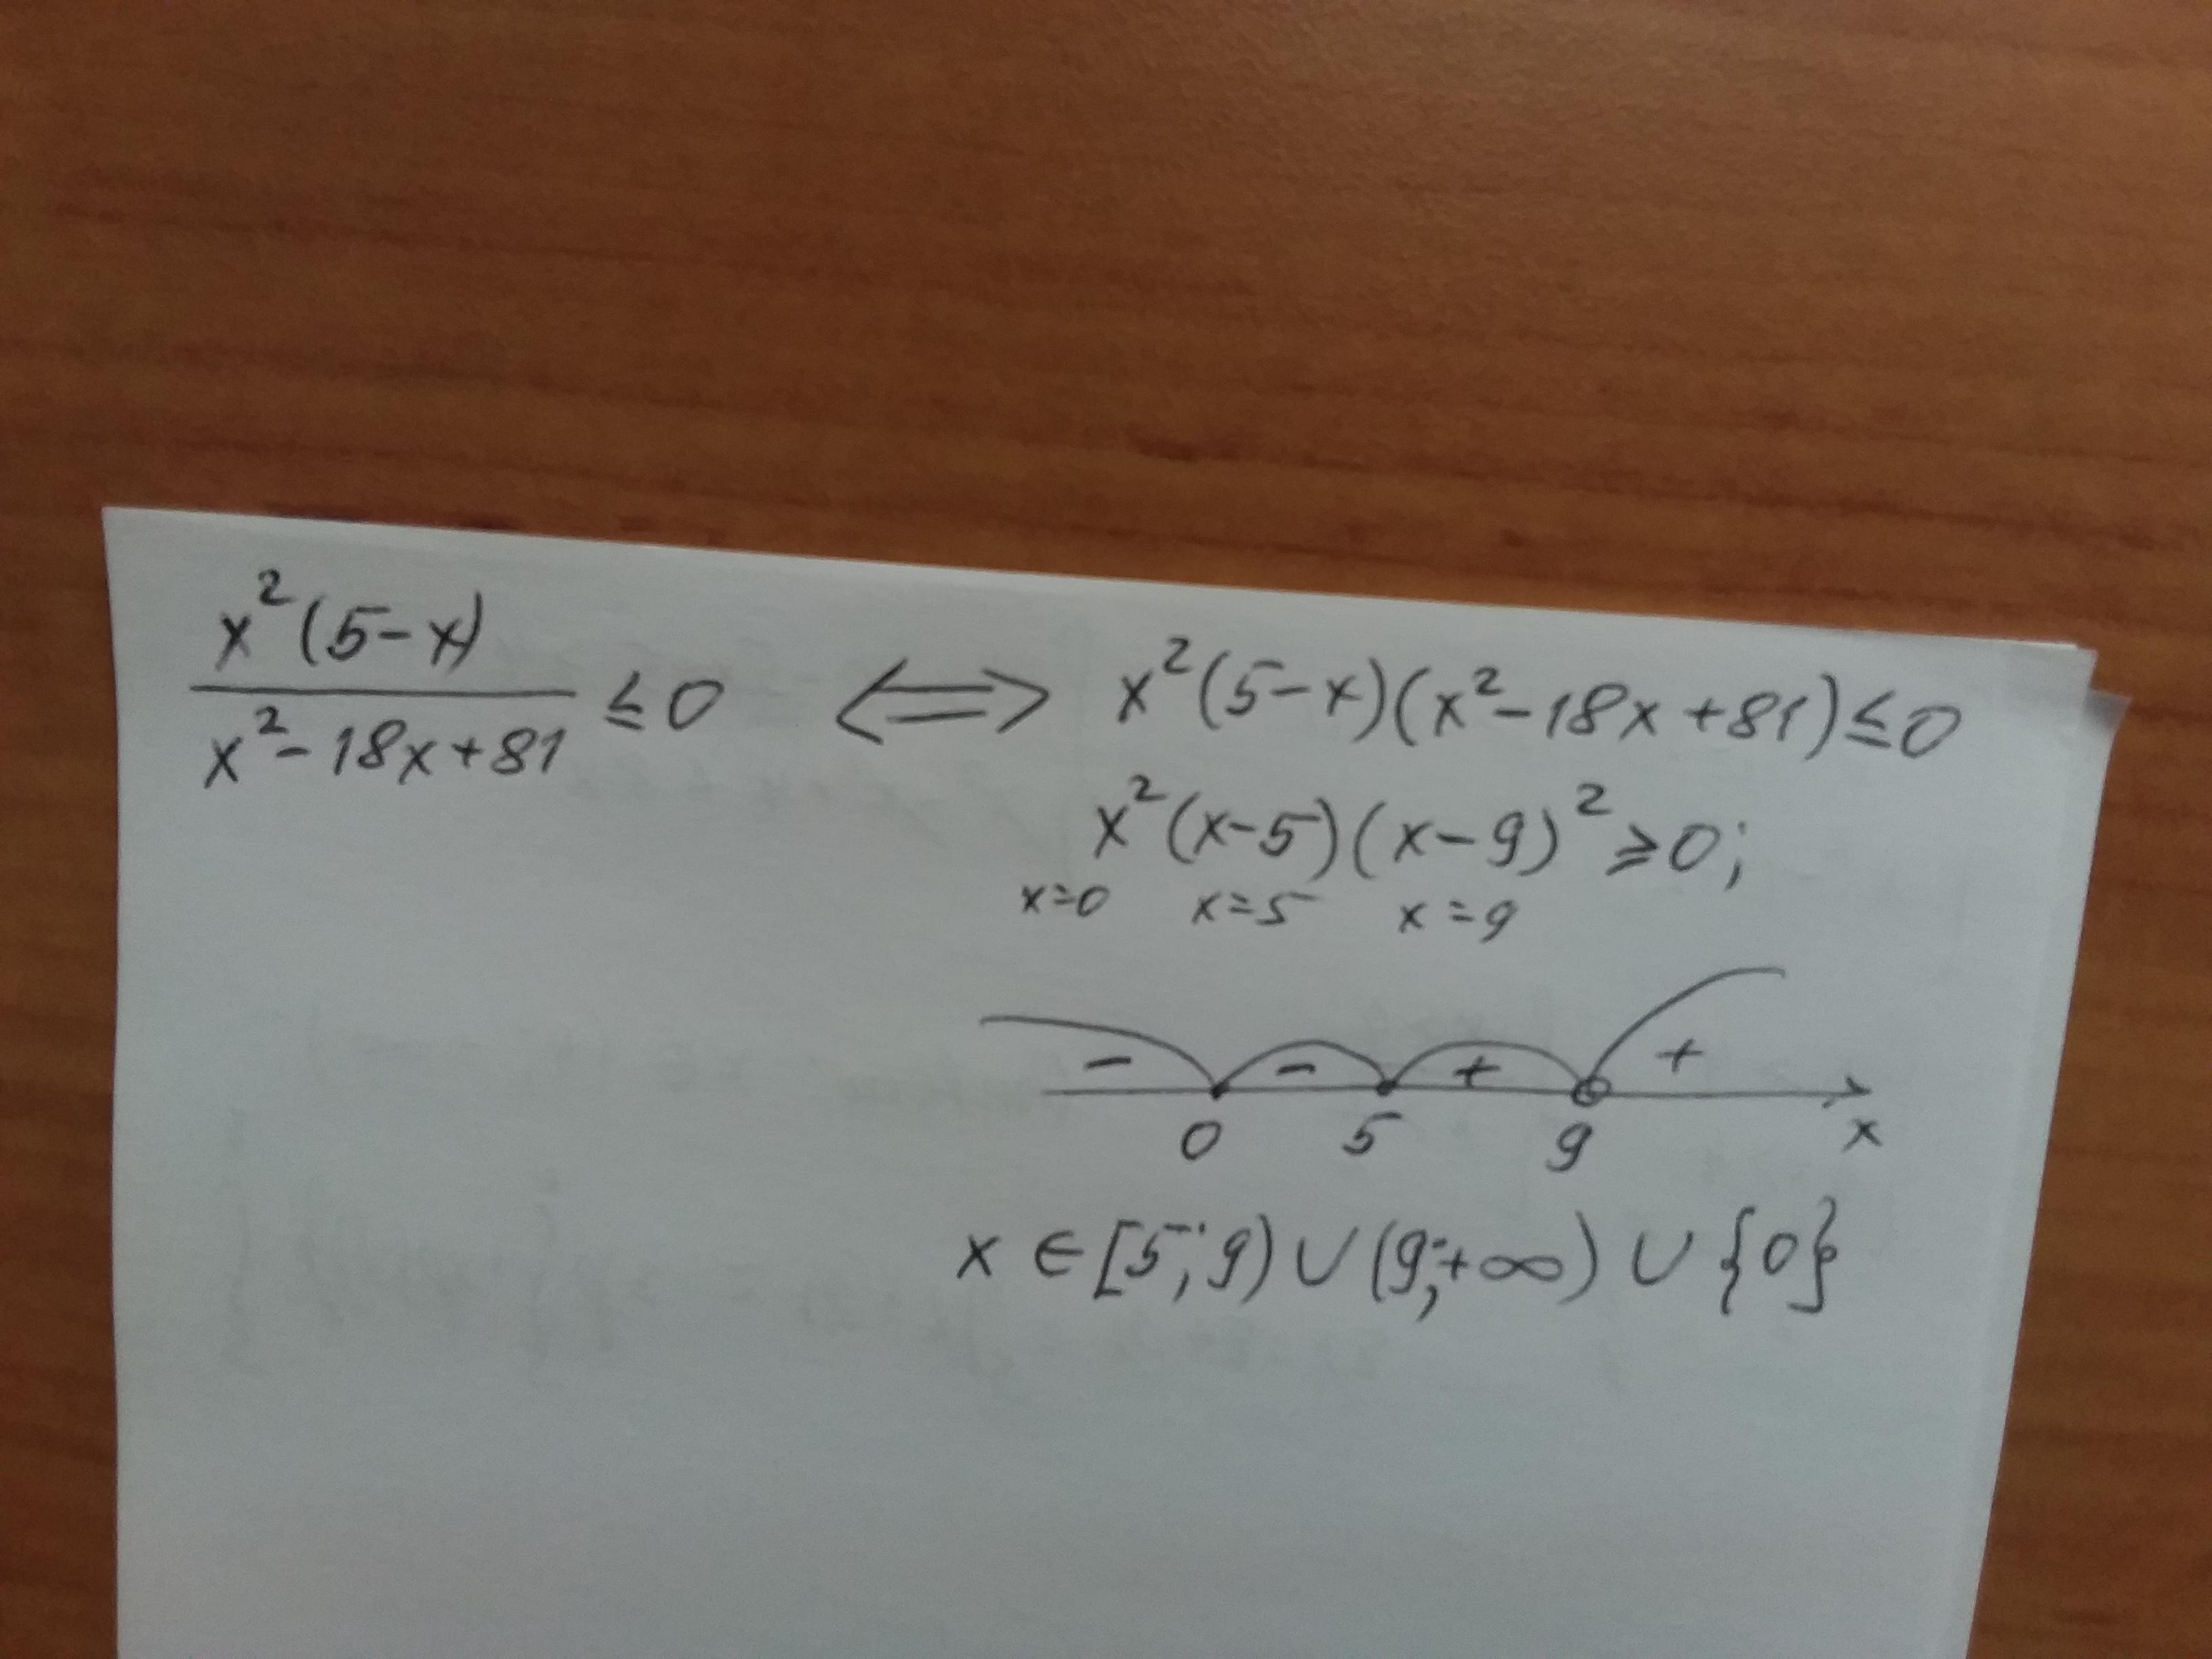 x²(5-x)/(x²-18x+81) ≤ 0 <=> x²(5-x)(x²-18x+81) ≤ 0
x²(x-5)(x-9)² ≥ 0;
x=0 x=5 x=9
- - + +
0 5 9 x
x ∈ [5;9) ∪ (9;+∞) ∪ {0}